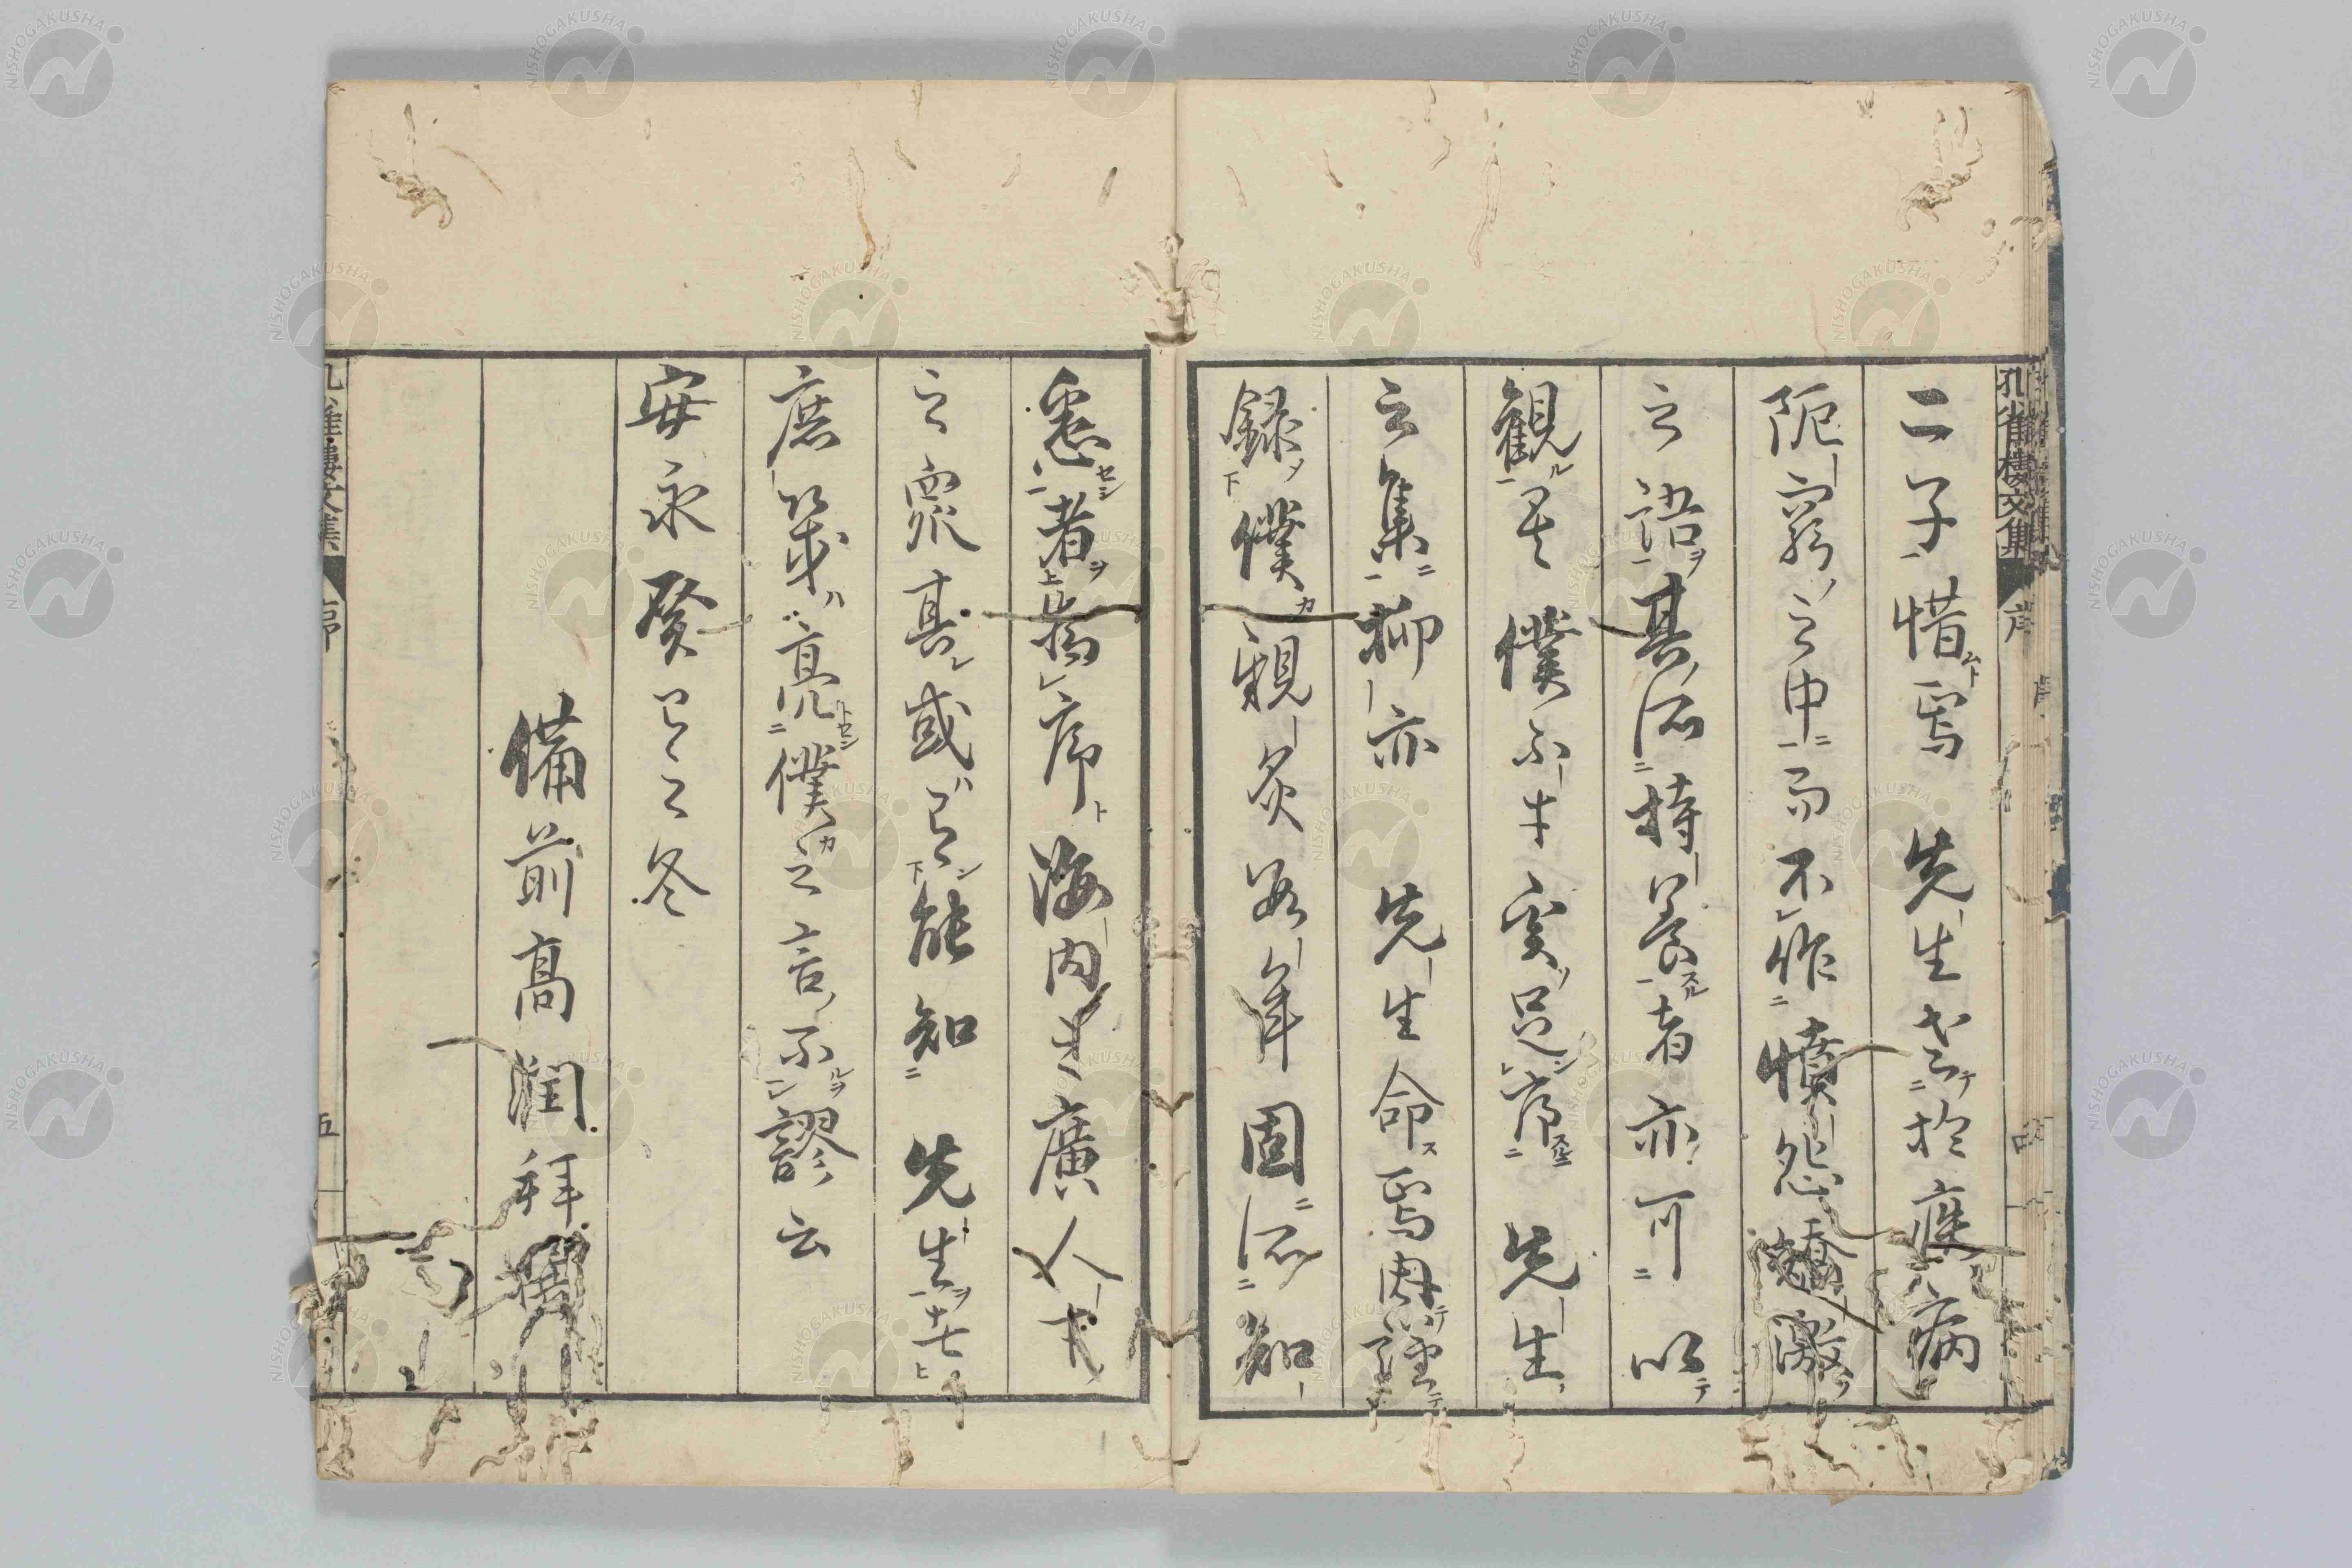 孔雀樓文集 序
二子惜焉先生老於癃病
阨窮之中而不作憤怨矯激
之語其所持養者亦可以
觀矣僕不才實不足序先生
之集抑亦先生命焉因謹
錄僕親炙數年固所知
悉者以擬序海内之廣人才
之衆其或有能知先生者
庶幾亮僕之言不謬云
安永癸巳之冬
備前高潤拜撰
孔雀樓文集 序 五
NISHOGAKUSHA